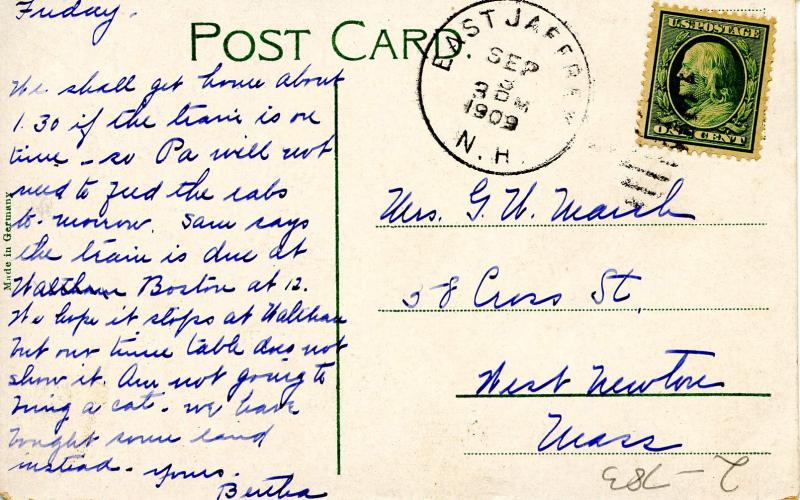 Friday.
POST CARD.
We shall get home about
1.30 if the train is on
time – so Pa will not
need to feed the
to-morrow. Sam says
the train is due at
Waltham Boston at 12.
We hope it stops at Waltham
but our time table does not
show it. Am not going to
bring a cat – we have
bought some land
instead – yours.
Bertha
Made in Germany
EAST JAFFREY
SEP
3
3 PM
1909
N.H.
U.S. POSTAGE
ONE CENT
Mrs. G. W. March
58 Cross St,
West Newton
Mass
2-783